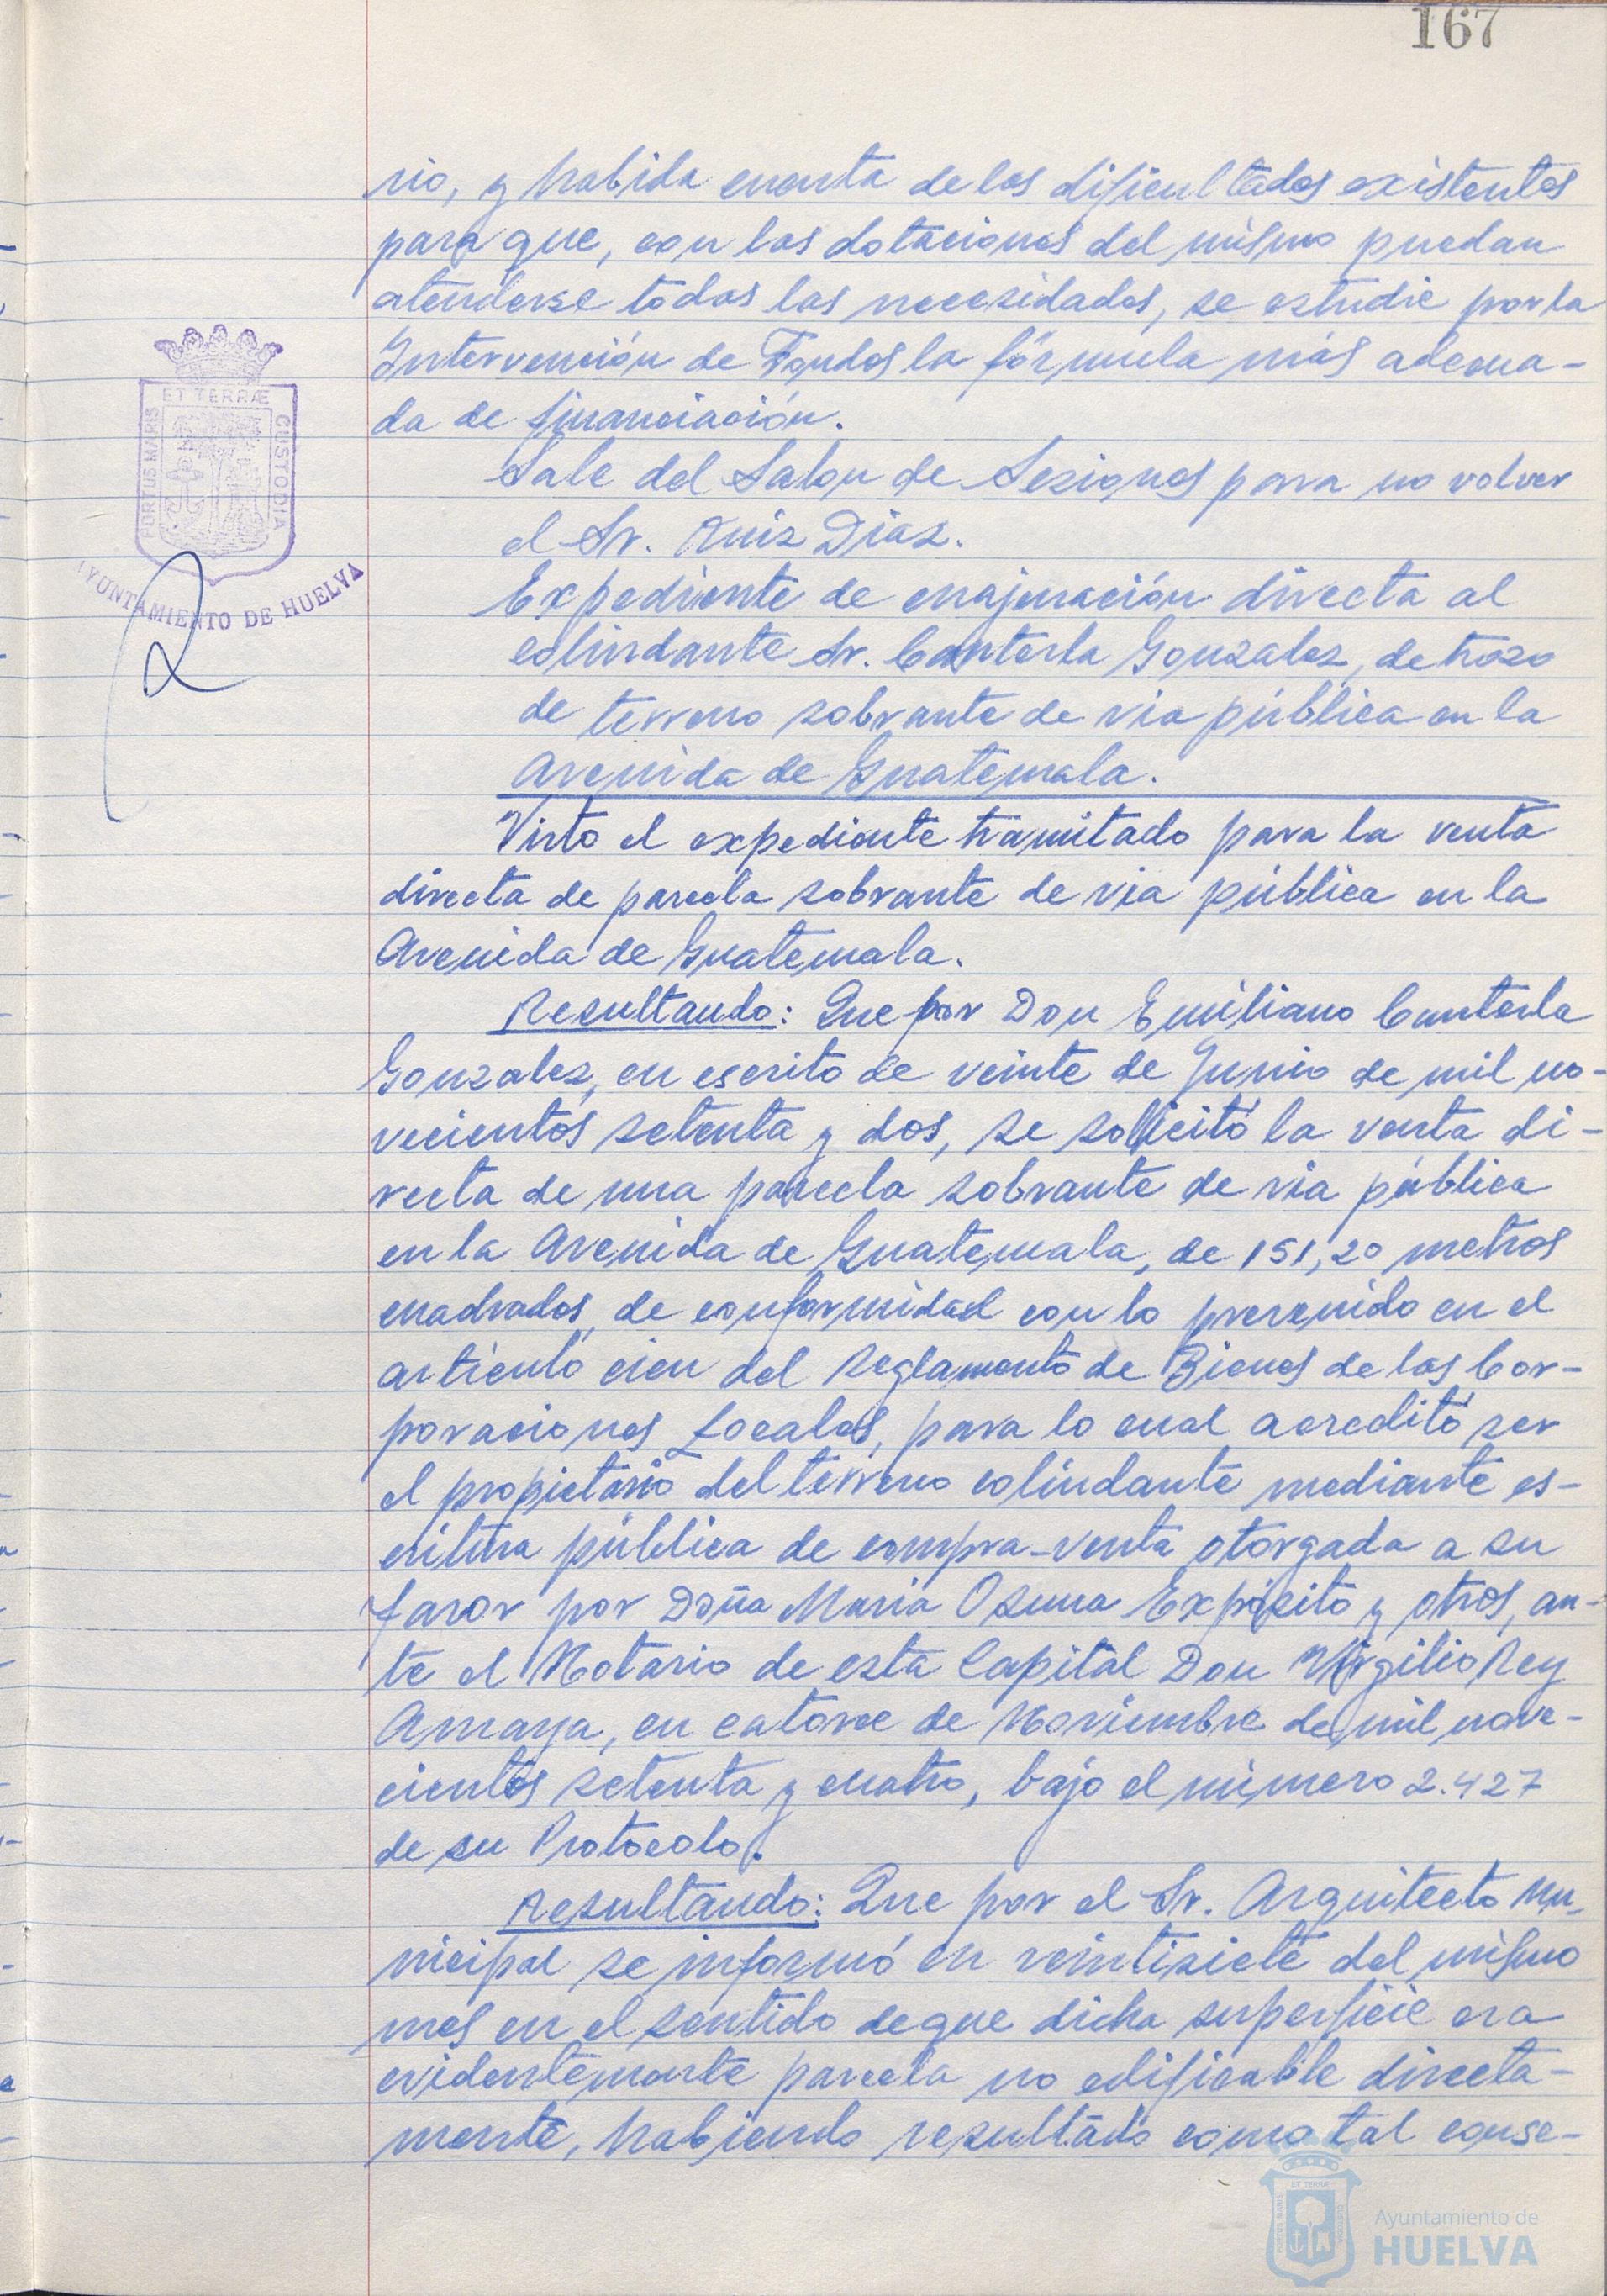 167
rio, y habida cuenta de las dificultades existentes
para que, con las dotaciones del mismo puedan
atenderse todas las necesidades, se estudie por la
Intervención de Fondos la fórmula más adecua-
da de financiación.
Sale del Salon de Sesiones para no volver
el Sr. Ruiz Diaz.
Expediente de enajenación directa al
colindante Sr. Canterla Gonzalez, de trozo
de terreno sobrante de via pública en la
Avenida de Guatemala.
Visto el expediente tramitado para la venta
directa de parcela sobrante de via pública en la
Avenida de Guatemala.
Resultando: Que por Don Emiliano Canterla
Gonzalez, en escrito de veinte de Junio de mil no-
vecientos setenta y dos, se solicitó la venta di-
recta de una parcela sobrante de via pública
en la Avenida de Guatemala, de 151,20 metros
cuadrados, de conformidad con lo prevenido en el
articulo cien del Reglamento de Bienes de las Cor-
poraciones Locales, para lo cual acreditó ser
el propietario del terreno colindante mediante es-
critura pública de compra-venta otorgada a su
favor por Doña Maria Osuna Expósito y otros, an-
te el Notario de esta Capital Don Virgilio Rey
Amaya, en catorce de Noviembre de mil nove-
cientos setenta y cuatro, bajo el número 2.427
de su Protocolo.
Resultando: Que por el Sr. Arquitecto Mu-
nicipal se informó en veintisiete del mismo
mes en el sentido de que dicha superficie era
evidentemente parcela no edificable directa-
mente, habiendo resultado como tal conse-
ET TERRÆ
PORTUS MARIS
CUSTODIA
AYUNTAMIENTO DE HUELVA
Ayuntamiento de
HUELVA